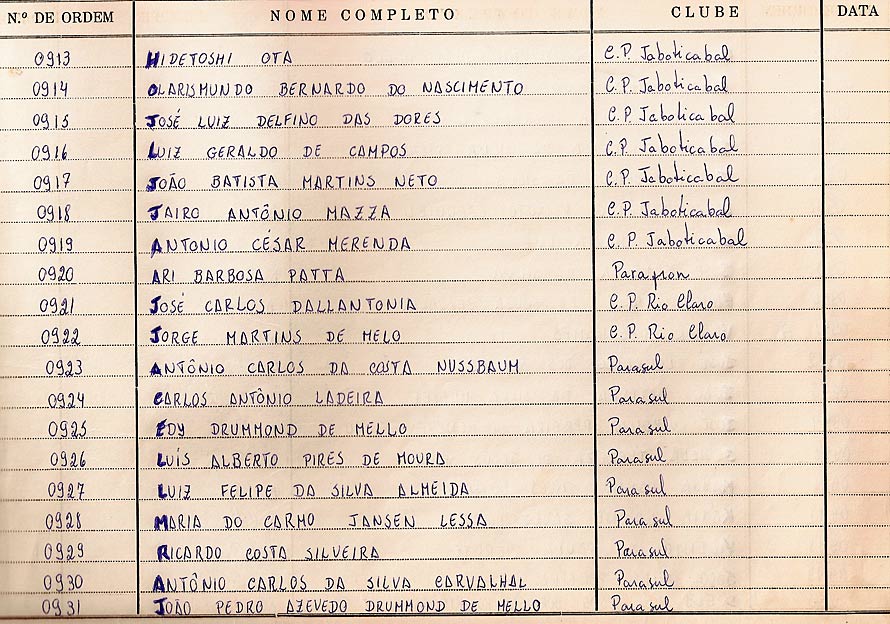 N.º DE ORDEM NOME COMPLETO CLUBE DATA
0913 HIDETOSHI OTA C.P. Jaboticabal
0914 OLARISMUNDO BERNARDO DO NASCIMENTO C.P. Jaboticabal
0915 JOSÉ LUIZ DELFINO DAS DORES C.P. Jaboticabal
0916 LUIZ GERALDO DE CAMPOS C.P. Jaboticabal
0917 JOÃO BATISTA MARTINS NETO C.P. Jaboticabal
0918 JAIRO ANTÔNIO MAZZA C.P. Jaboticabal
0919 ANTONIO CÉSAR MERENDA C.P. Jaboticabal
0920 ARI BARBOSA PATTA
0921 JOSÉ CARLOS DALLANTONIA C.P. Rio Claro
0922 JORGE MARTINS DE MELO C.P. Rio Claro
0923 ANTÔNIO CARLOS DA COSTA NUSSBAUM Parasul
0924 CARLOS ANTÔNIO LADEIRA Parasul
0925 EDY DRUMMOND DE MELLO Parasul
0926 LUÍS ALBERTO PIRES DE MOURA Parasul
0927 LUIZ FELIPE DA SILVA ALMEIDA Parasul
0928 MARIA DO CARMO JANSEN LESSA Parasul
0929 RICARDO COSTA SILVEIRA Parasul
0930 ANTÔNIO CARLOS DA SILVA CARVALHAL Parasul
0931 JOÃO PEDRO AZEVEDO DRUMMOND DE MELLO Parasul